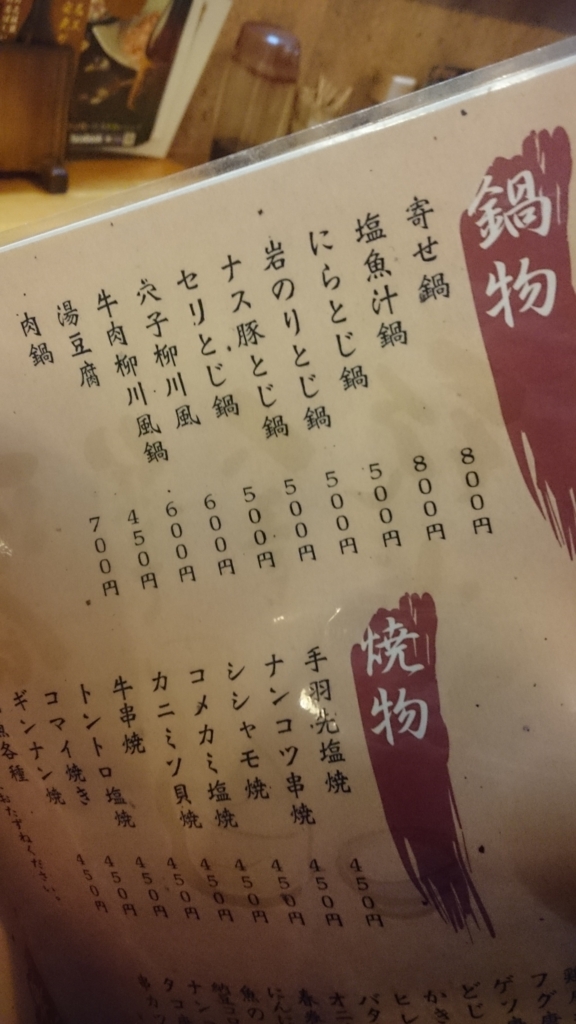 鍋物
寄せ鍋 800円
塩魚汁鍋 800円
にらとじ鍋 500円
岩のりとじ鍋 500円
ナス豚とじ鍋 500円
セリとじ鍋 500円
穴子柳川風 600円
牛肉柳川風鍋 600円
湯豆腐 450円
肉鍋 700円
焼物
手羽先塩焼 450円
ナンコツ串焼 450円
シシャモ焼 450円
コメカミ塩焼 450円
カニミソ貝焼 450円
牛串焼 450円
トントロ塩焼 450円
コマイ焼き 450円
ギンナン焼 450円
魚各種
フグ
ゲソ
どじ
かき
ヒレ
バタ
オニ
春巻
にんに
魚の
ナン
タコ
串カツ